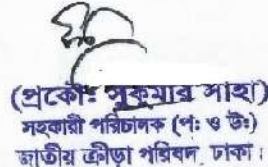 (প্রকৌঃ সুকুমার সাহা)
সহকারী পরিচালক (পঃ ও উঃ)
জাতীয় ক্রীড়া পরিষদ ঢাকা।